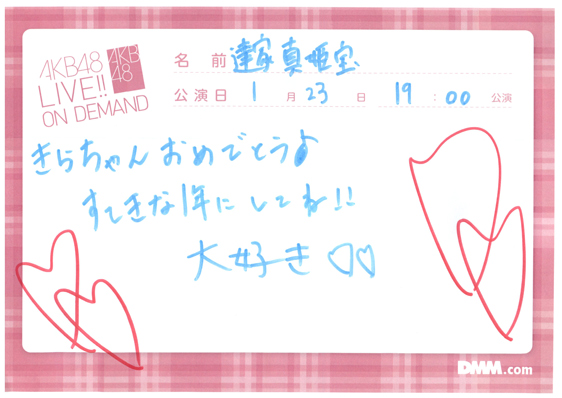 AKB48
LIVE!!
ON DEMAND
AKB
48
名 前 達家真姫宝
公演日 1 月 23 日 19 : 00 公演
きらちゃんおめでとう♪
すてきな1年にしてね!!
大好き♡♡
DMM.com